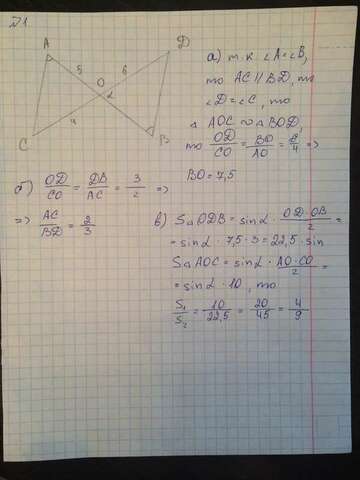 №1
A
D
5
6
O
α
4
C
B
а) т.к. ∠A=∠B,
то AC || BD, то
∠D=∠C, то
△ AOC ∾ △ BOD,
то OD/CO = BO/AO = 6/4 =>
BO = 7,5
б) OD/CO = DB/AC = 3/2 =>
=> AC/BD = 2/3
в) S△ODB = sinα · OD·OB/2 =
= sinα · 7,5 · 3 = 22,5 · sin
S△AOC = sinα · AO·CO/2 =
= sinα · 10, то
S₁/S₂ = 10/22,5 = 20/45 = 4/9